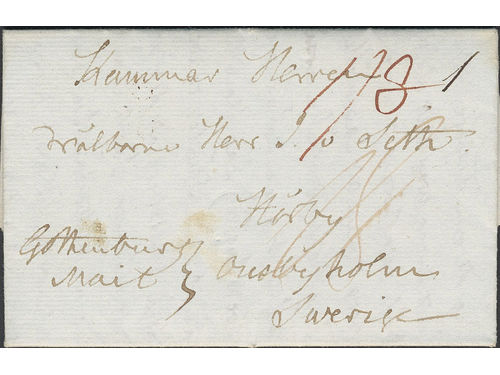 Kammar Herren
Wälborne Herr J. v Seth.
Hörby
Gothenburg
Mail
Ousbyholm
Swerige
1/8 1